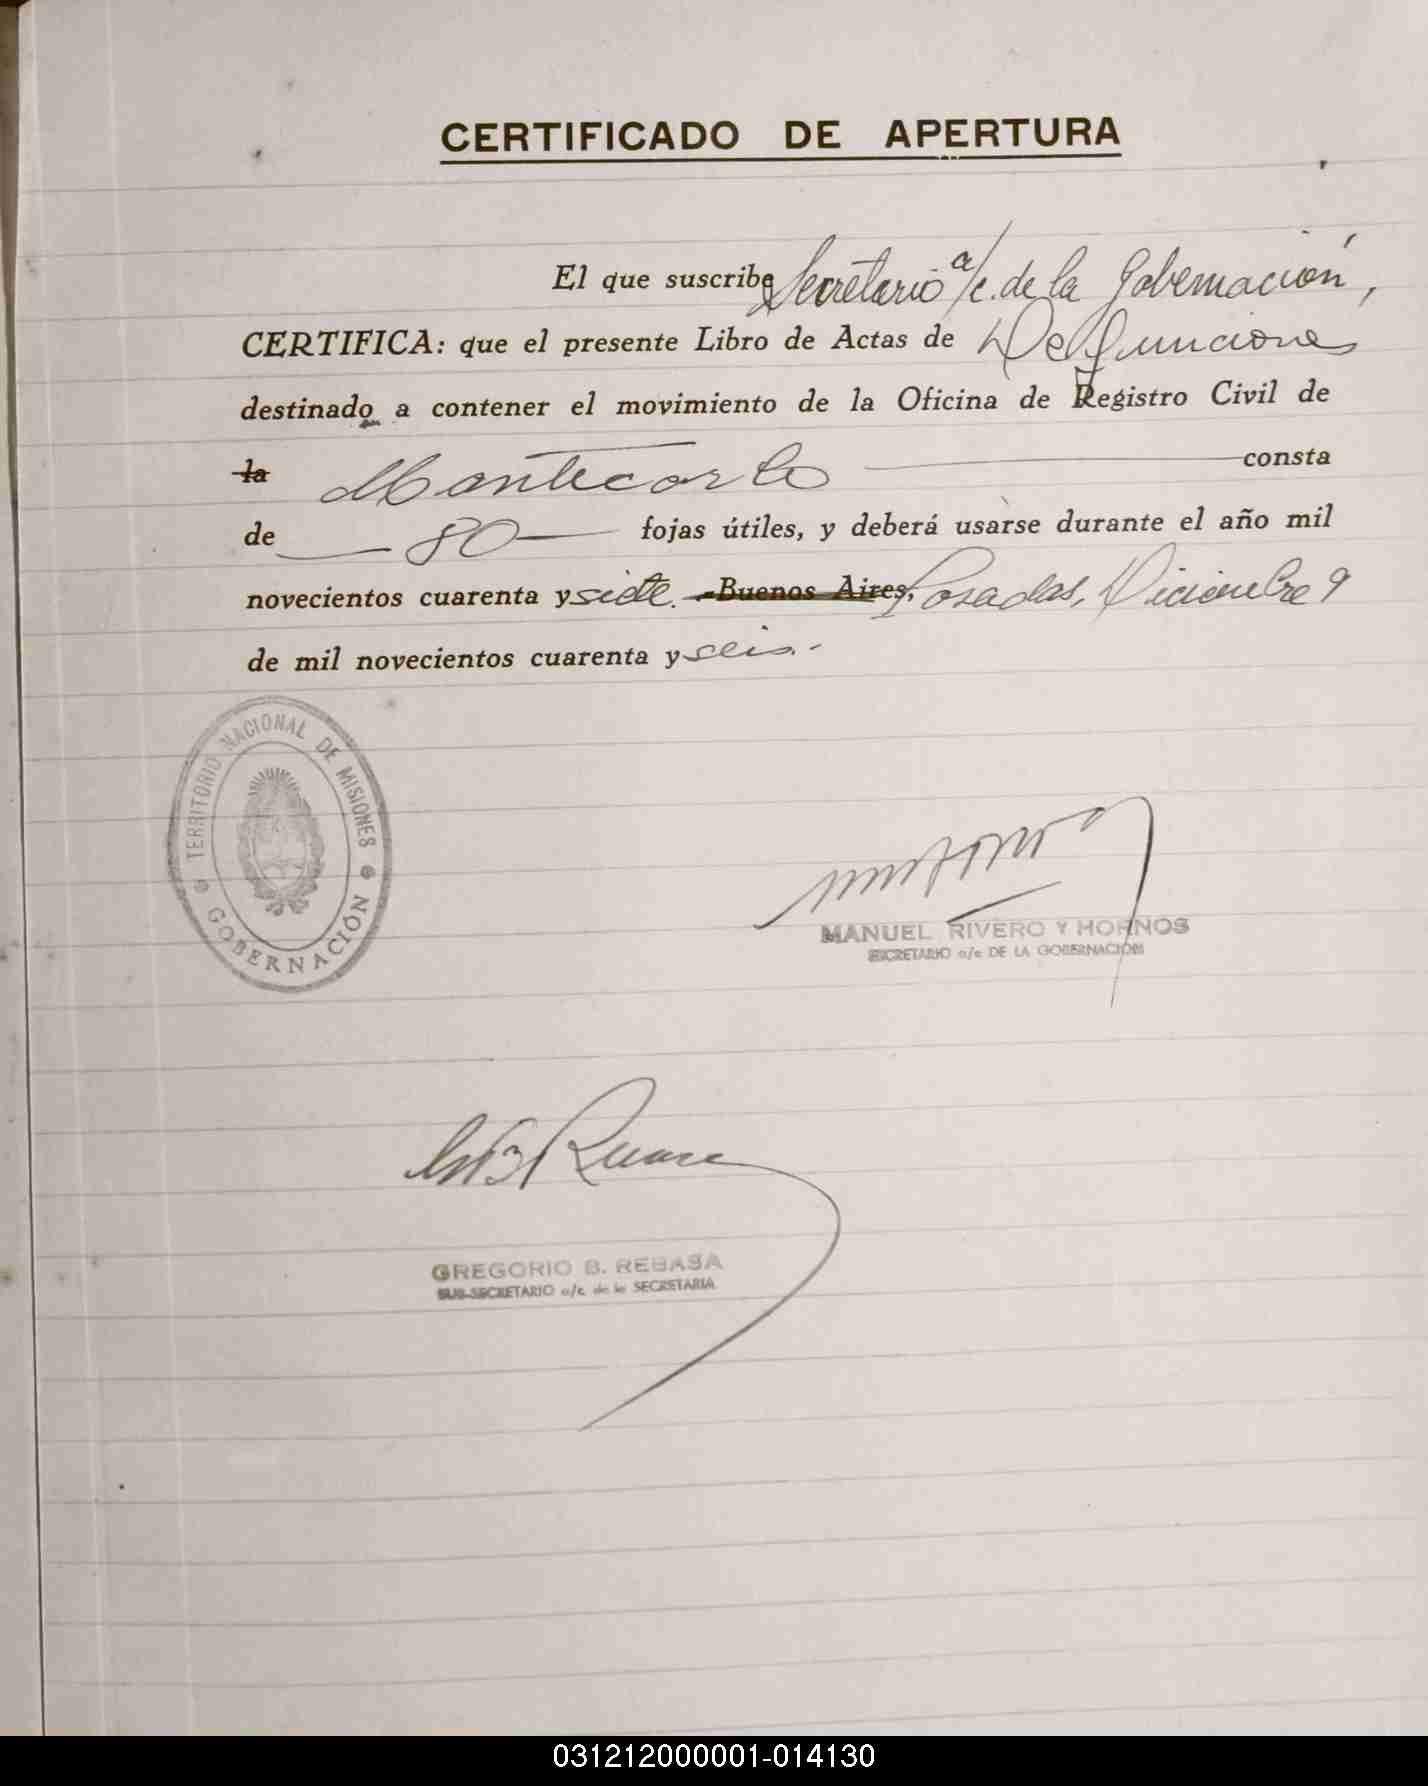 CERTIFICADO DE APERTURA
El que suscribe Secretario a/c. de la Gobernación,
CERTIFICA: que el presente Libro de Actas de Defunciones
destinado a contener el movimiento de la Oficina de Registro Civil de
la Montecarlo consta
de 80 fojas útiles, y deberá usarse durante el año mil
novecientos cuarenta y siete. -Buenos Aires, Posadas, Diciembre 9
de mil novecientos cuarenta y seis.-
TERRITORIO NACIONAL DE MISIONES
GOBERNACIÓN
MANUEL RIVERO Y HORNOS
SECRETARIO a/c DE LA GOBERNACION
GREGORIO B. REBASA
SUB-SECRETARIO a/c. de la SECRETARIA
031212000001-014130